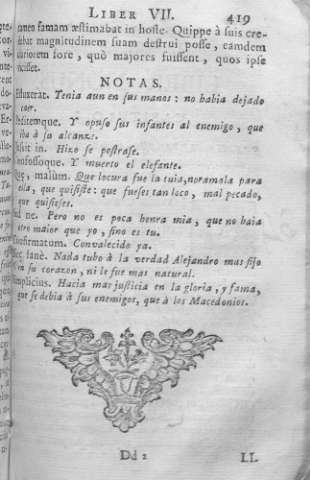 LIBER VII. 419
tamen famam æstimabat in hoste. Quippe à suis cre-
debat magnitudinem suam destrui posse, eamdem
clariorem fore, quò majores fuissent, quos ipse
vicisset.
NOTAS.
Effluxerat. Tenia aun en sus manos: no habia dejado
caer.
Peditemque. Y opuso sus infantes al enemigo, que
iba à su alcanze.
Jussit in. Hizo se postrase.
Confossoque. Y muerto el elefante.
Quæ, malum. Que locura fue la tuia, noramala para
ella, que quisiste: que fueses tan loco, mal pecado,
que quisieses.
Sed ne. Pero no es poca honra mia, que no haia
otro maior que yo, sino es tu.
Confirmatum. Convalecido ya.
Nec sanè. Nada tubo à la verdad Alejandro mas fijo
en su corazon, ni le fue mas natural.
Simplicius. Hacia mas justicia en la gloria, y fama,
que se debia à sus enemigos, que à los Macedonios.
Dd 2 LI.